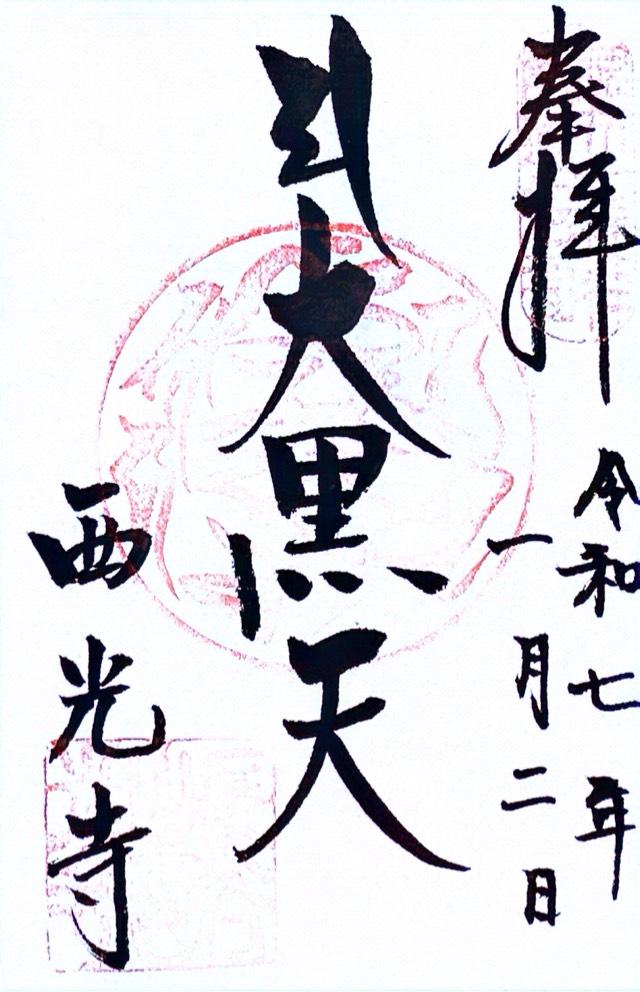 奉拝
令和七年
一月二日
大黒天
西光寺